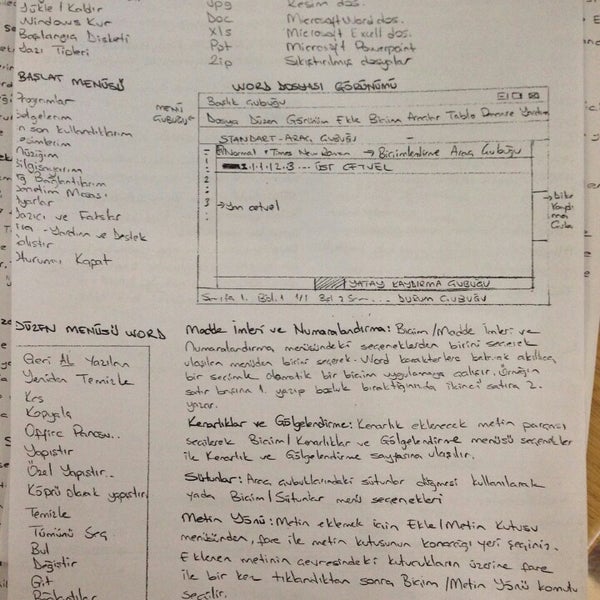 Yükle / Kaldır
Windows Kur
Başlangıç Disketi
Yazı Tipleri
Jpg Kesim dos.
Doc Microsoft Word dos.
Xls Microsoft Excell dos.
Ppt Microsoft Powerpoint
Zip Sıkıştırılmış dosyalar
BAŞLAT MENÜSÜ
Programlar
Belgelerim
En son kullandıklarım
Resimlerim
Müziğim
Bilgisayarım
Ağ Bağlantılarım
Denetim Masası
Ayarlar
Yazıcı ve Fakslar
Yardım ve Destek
Çalıştır
Oturumu Kapat
WORD DOSYASI GÖRÜNÜMÜ
MENÜ
ÇUBUĞU
Başlık Çubuğu
Dosya Düzen Görünüm Ekle Biçim Araçlar Tablo Pencere Yardım
STANDART ARAÇ ÇUBUĞU
Normal • Times New Roman → Biçimlendirme Araç Çubuğu
1.1.1.2.3 ... ÜST CETVEL
1
2
3 → Yan cetvel
→ Dikey
Kaydırma
Çubuğu
YATAY KAYDIRMA ÇUBUĞU
Sayfa 1. Böl.1 1/1 DURUM ÇUBUĞU
DÜZEN MENÜSÜ WORD
Geri AL Yazılan
Yeniden Temizle
Kes
Kopyala
Office Panosu..
Yapıştır
Özel Yapıştır..
Köprü olarak yapıştır
Temizle
Tümünü Seç
Bul
Değiştir
Git
Bağlantılar
Madde İmleri ve Numaralandırma: Biçim / Madde İmleri ve
Numaralandırma menüsündeki seçeneklerden birini seçerek
ulaşılan menüden birini seçerek. Word karakterlere bakarak akıllıca
bir seçimle otomatik bir biçim uygulamaya çalışır. Örneğin
satır başına 1. yazıp boşluk bıraktığınızda ikinci satıra 2.
yazar.
Kenarlıklar ve Gölgelendirme: Kenarlık eklenecek metin parçası
seçilerek Biçim / Kenarlıklar ve Gölgelendirme menüsü seçenekler
ile Kenarlık ve Gölgelendirme sayfasına ulaşılır.
Sütunlar: Araç çubuklarındaki sütunlar düğmesi kullanılarak
yada Biçim / Sütunlar menü seçenekleri
Metin Yönü: Metin eklemek için Ekle / Metin Kutusu
menüsünden, fare ile metin kutusunun konacağı yeri seçiniz.
Eklenen metinin çevresindeki kutucukların üzerine fare
ile bir kez tıklandıktan sonra Biçim / Metin Yönü komutu
seçilir.